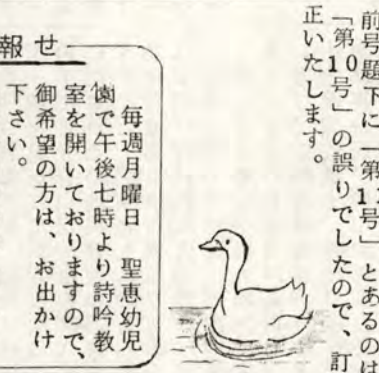 前号題下に「第11号」とあるのは
「第10号」の誤りでしたので、訂
正いたします。
報せ
毎週月曜日 聖恵幼児
園で午後七時より詩吟教
室を開いておりますので、
御希望の方は、お出かけ
下さい。